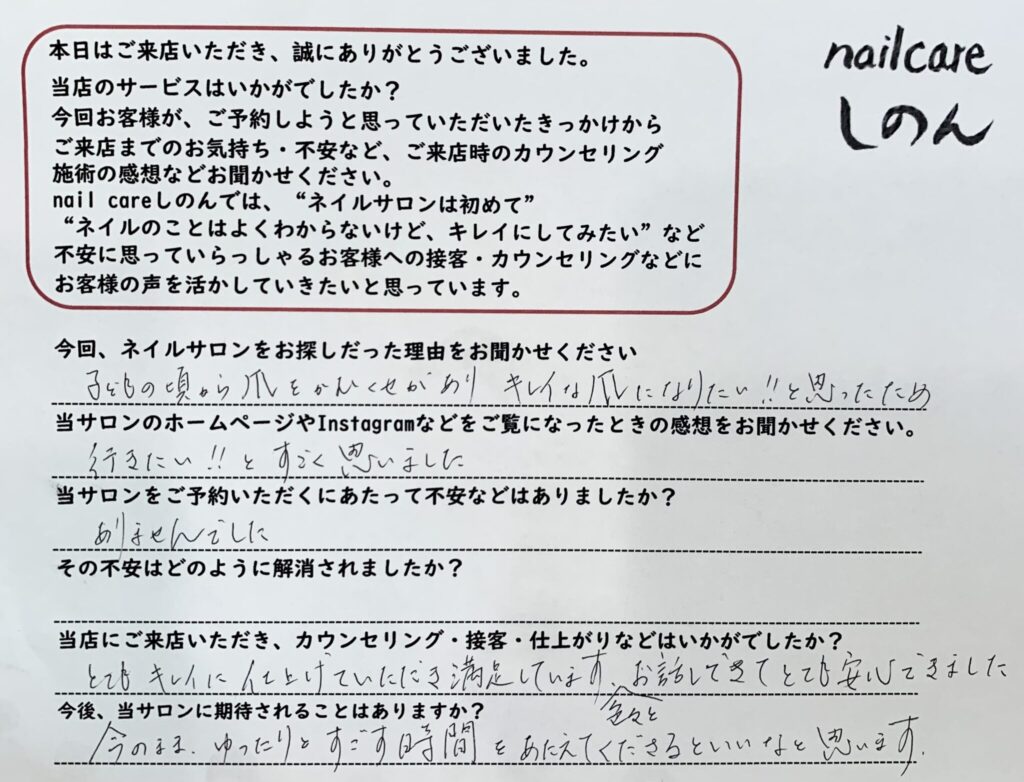 nailcare
しのん
本日はご来店いただき、誠にありがとうございました。
当店のサービスはいかがでしたか？
今回お客様が、ご予約しようと思っていただいたきっかけから
ご来店までのお気持ち・不安など、ご来店時のカウンセリング
施術の感想などお聞かせください。
nail careしのんでは、“ネイルサロンは初めて”
“ネイルのことはよくわからないけど、キレイにしてみたい”など
不安に思っていらっしゃるお客様への接客・カウンセリングなどに
お客様の声を活かしていきたいと思っています。
今回、ネイルサロンをお探しだった理由をお聞かせください
子どもの頃から爪をかむくせがあり キレイな爪になりたい!!と思ったため
当サロンのホームページやInstagramなどをご覧になったときの感想をお聞かせください。
行きたい!!とすごく思いました
当サロンをご予約いただくにあたって不安などはありましたか？
ありませんでした
その不安はどのように解消されましたか？
当店にご来店いただき、カウンセリング・接客・仕上がりなどはいかがでしたか？
とてもキレイに仕上げていただき満足しています、色々とお話しできてとても安心できました
今後、当サロンに期待されることはありますか？
今のまま、ゆったりとすごす時間をあたえてくださるといいなと思います。